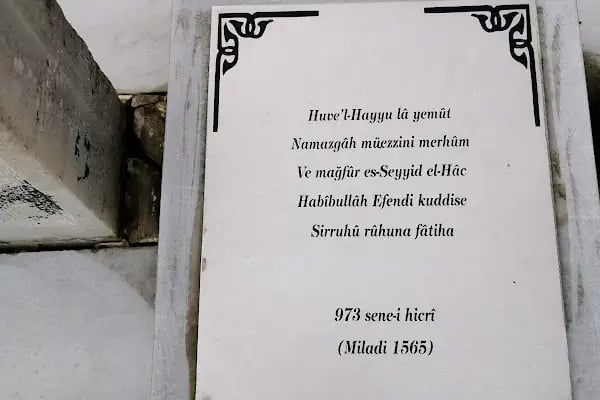 Huve'l-Hayyu lâ yemût
Namazgâh müezzini merhûm
Ve mağfûr es-Seyyid el-Hâc
Habîbullâh Efendi kuddise
Sirruhû rûhuna fâtiha
973 sene-i hicrî
(Miladi 1565)